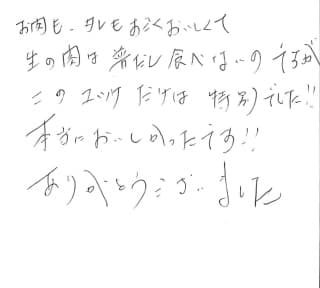 お肉も、タレもあつくおいしくて
生の肉は普だし食べないのですが
このユッケだけは特別でした!!
本当においしかったです!!
ありがとうございました